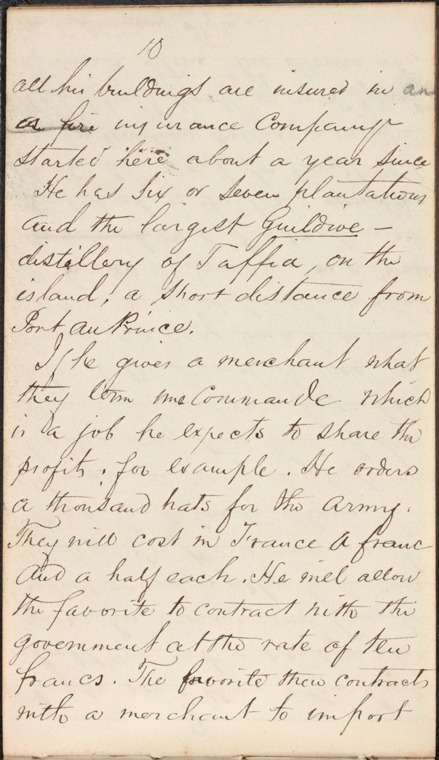 10
all his buildings are insured in an
or fire insurance Company
started here about a year since
He has six or seven plantations
and the largest Guildive -
distillery of Taffia, on the
island, a short distance from
Port au Prince.
If he gives a merchant what
they term une Commande which
is a job he expects to share the
profits, for example. He orders
a thousand hats for the army.
They will cost in France a franc
and a half each. He will allow
the favorite to contract with the
government at the rate of ten
francs. The favorite then contracts
with a merchant to import